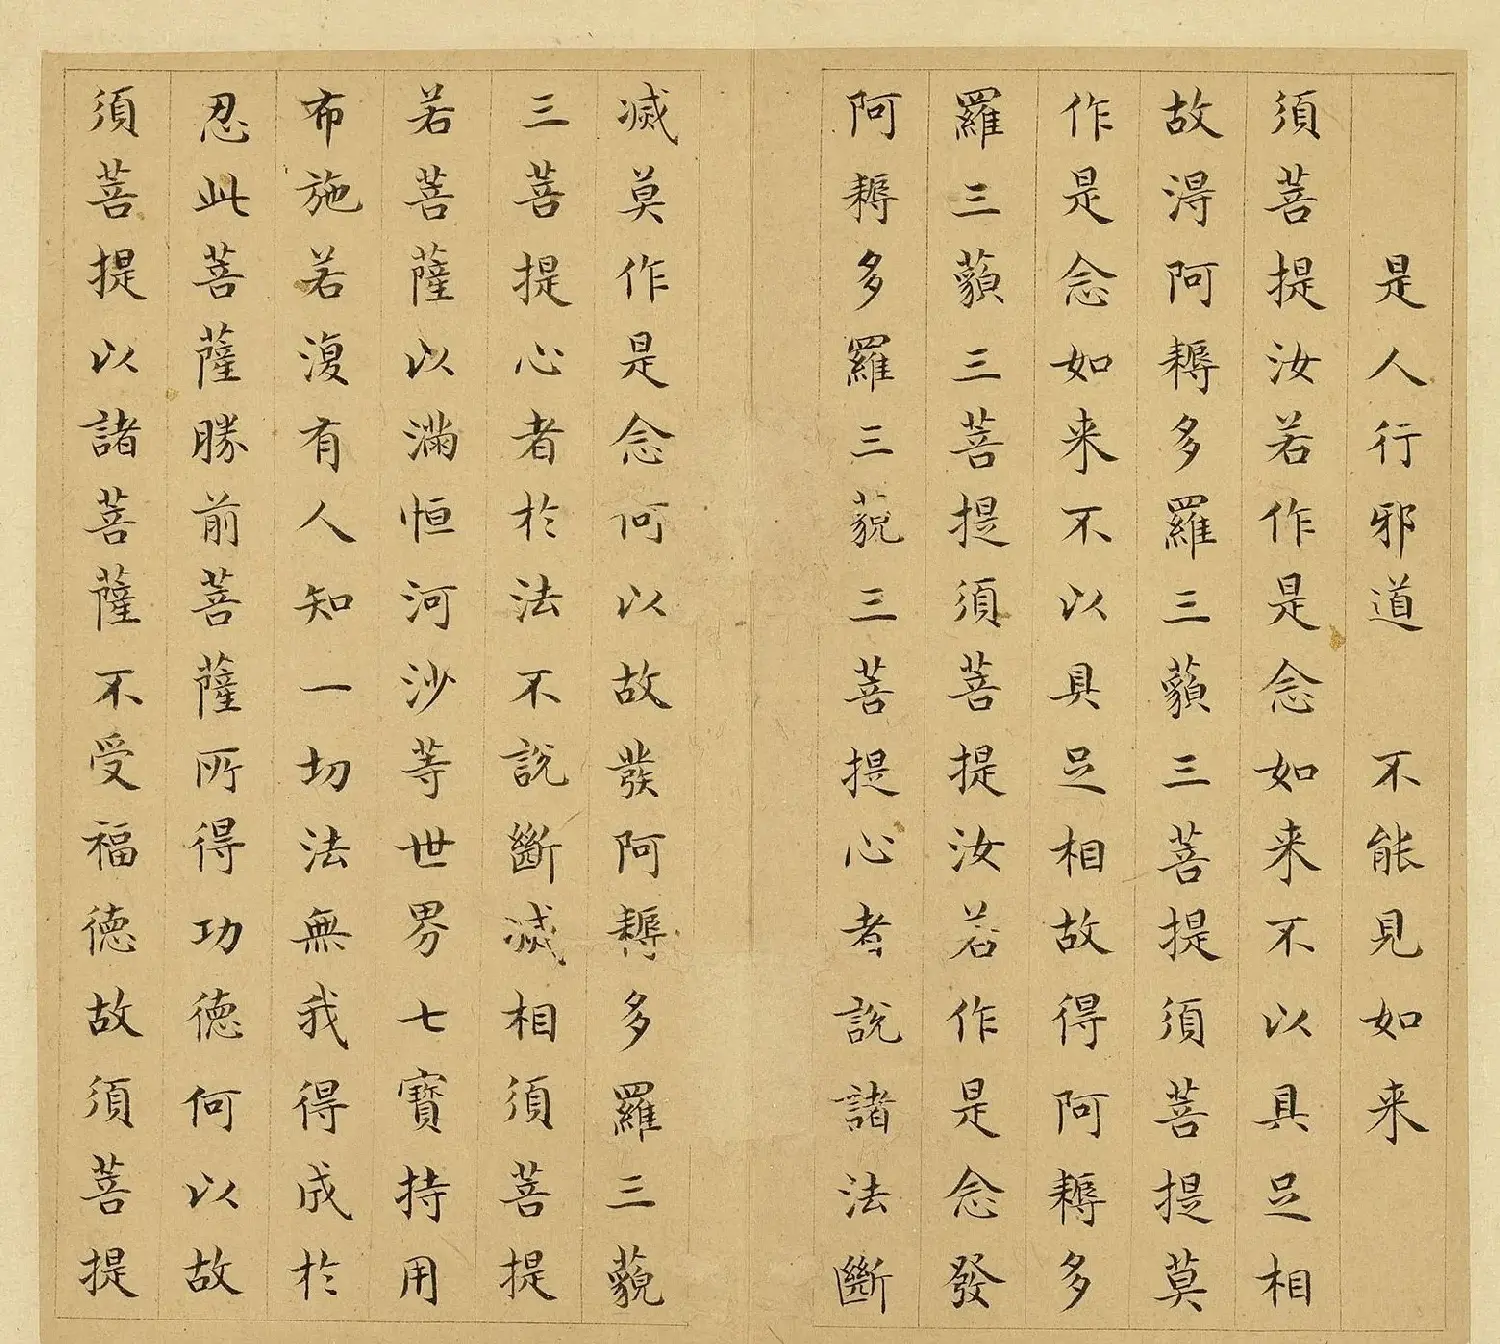 是人行邪道　不能見如来
須菩提汝若作是念如来不以具足相
故淂阿耨多羅三藐三菩提須菩提莫
作是念如来不以具足相故得阿耨多
羅三藐三菩提須菩提汝若作是念發
阿耨多羅三藐三菩提心者說諸法斷
滅莫作是念何以故發阿耨多羅三藐
三菩提心者於法不說斷滅相須菩提
若菩薩以滿恒河沙等世界七寶持用
布施若復有人知一切法無我得成於
忍此菩薩勝前菩薩所得功德何以故
須菩提以諸菩薩不受福德故須菩提